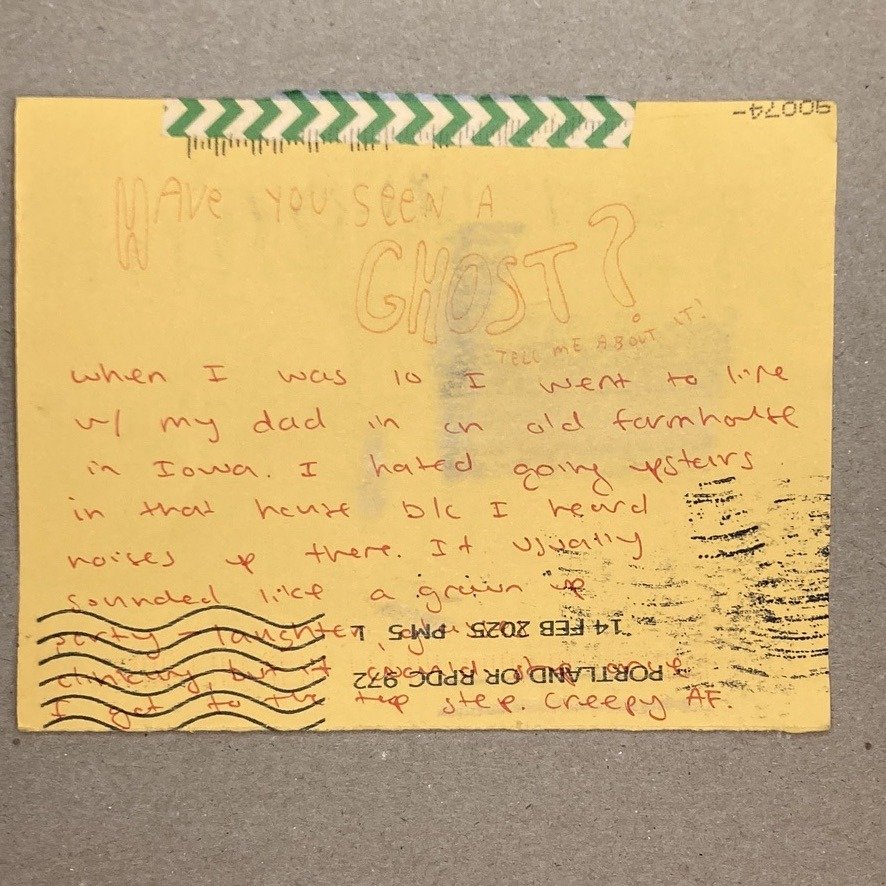 90074-
HAVE YOU SEEN A
GHOST?
TELL ME ABOUT IT!
when I was 10 I went to live
w/ my dad in an old farmhouse
in Iowa. I hated going upstairs
in that house b/c I heard
noises up there. It usually
sounded like a grown up
party - laughter,
14 FEB 2025 PM 5 L
clinking, but it would stop once
PORTLAND OR RPDC 972
I got to the top step. Creepy AF.